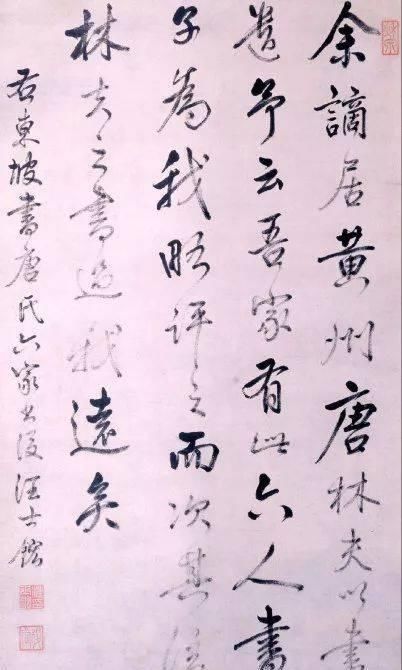 余謫居黃州唐林夫以書
遺予云吾家有此六人書
子為我略評之而次其後
林夫之書過我遠矣
右東坡書唐氏六家書後汪士鋐